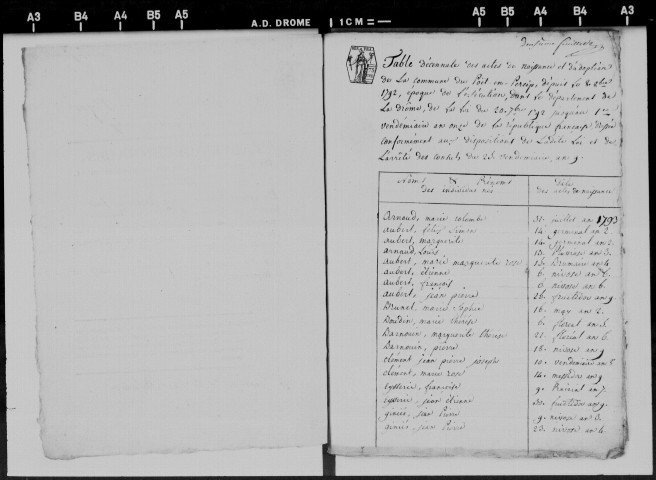 A3 B4 A4 B5 A5 A.D. DROME 1 CM A5 B5 A4 B4 A3
Table décennale des actes de naissance et d'adoption
de La commune du
1792, époque de L'exécution, dans le département de
La drôme, de la Loi du 20. 7bre 1792 jusqu'au 1er
vendemiaire an onze de la république francaise
conformement aux dispositions de Ladite Loi et de
L'arrêté des consuls du 25 vendemiaire, an 9.
Noms & Prénoms
des individus nés
Date
des actes de naissance
Arnaud, marie colombe 31. juillet an 1793
aubert, 14. germinal an 2.
aubert, marguerite 14. germinal an 2.
arnaud, Louis an 3.
aubert, marie marguerite rose Brumaire an 6.
aubert, étienne 6. nivose an 6.
aubert, françois 6. nivose an 6.
aubert, jean pierre 26. fructidor an 9.
Brunet, marie Sophie 16. may an 2.
marie therese 6. floreal an 5.
Barnouin, marguerite therese 21. floréal an 6.
Barnouin, pierre 16. nivose an 9
clément jean pierre josephe 10. vendemiaire an 8
clément, marie rose 14. messidor an 9
eysserie, francoise 9. an 7.
eysserie, jean étienne 30. fructidor an 9.
giniés, jean Pierre 9. nivose an 3.
giniés, jean Pierre 23. nivose an 6.